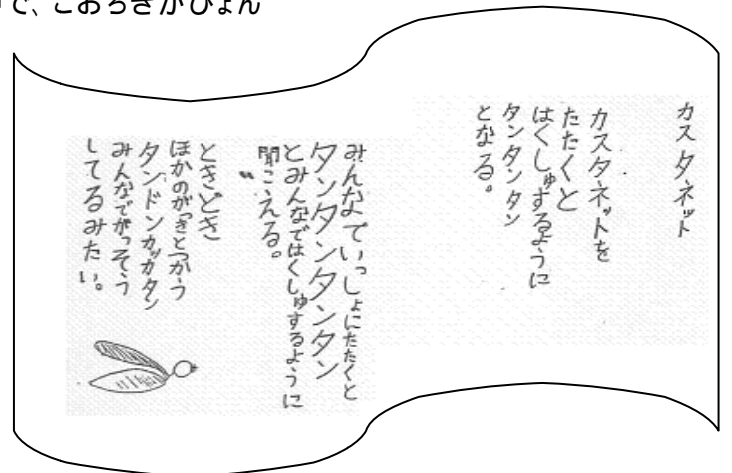 で、こおろぎがぴょん
カスタネット
カスタネットを
たたくと
はくしゅするように
タンタンタン
となる。
みんなでいっしょにたたくと
タンタンタンタンタン
とみんなではくしゅするように
聞こえる。
ときどき
ほかのがっきとつかう
タンドンカッカタン
みんなでがっそう
してるみたい。